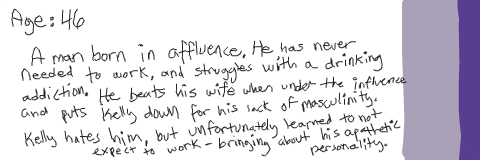 Age: 46
A man born in affluence. He has never
needed to work, and struggles with a drinking
addiction. He beats his wife when under the influence
and puts Kelly down for his lack of masculinity.
Kelly hates him, but unfortunately learned to not
expect to work - bringing about his apathetic
personality.